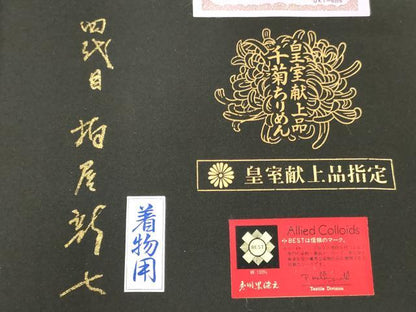 四代目 柏屋新七
着物用
皇室献上品
千菊ちりめん
皇室献上品指定
Allied Colloids
BESTは信頼のマーク。
BEST
絹 100%
Textile Division